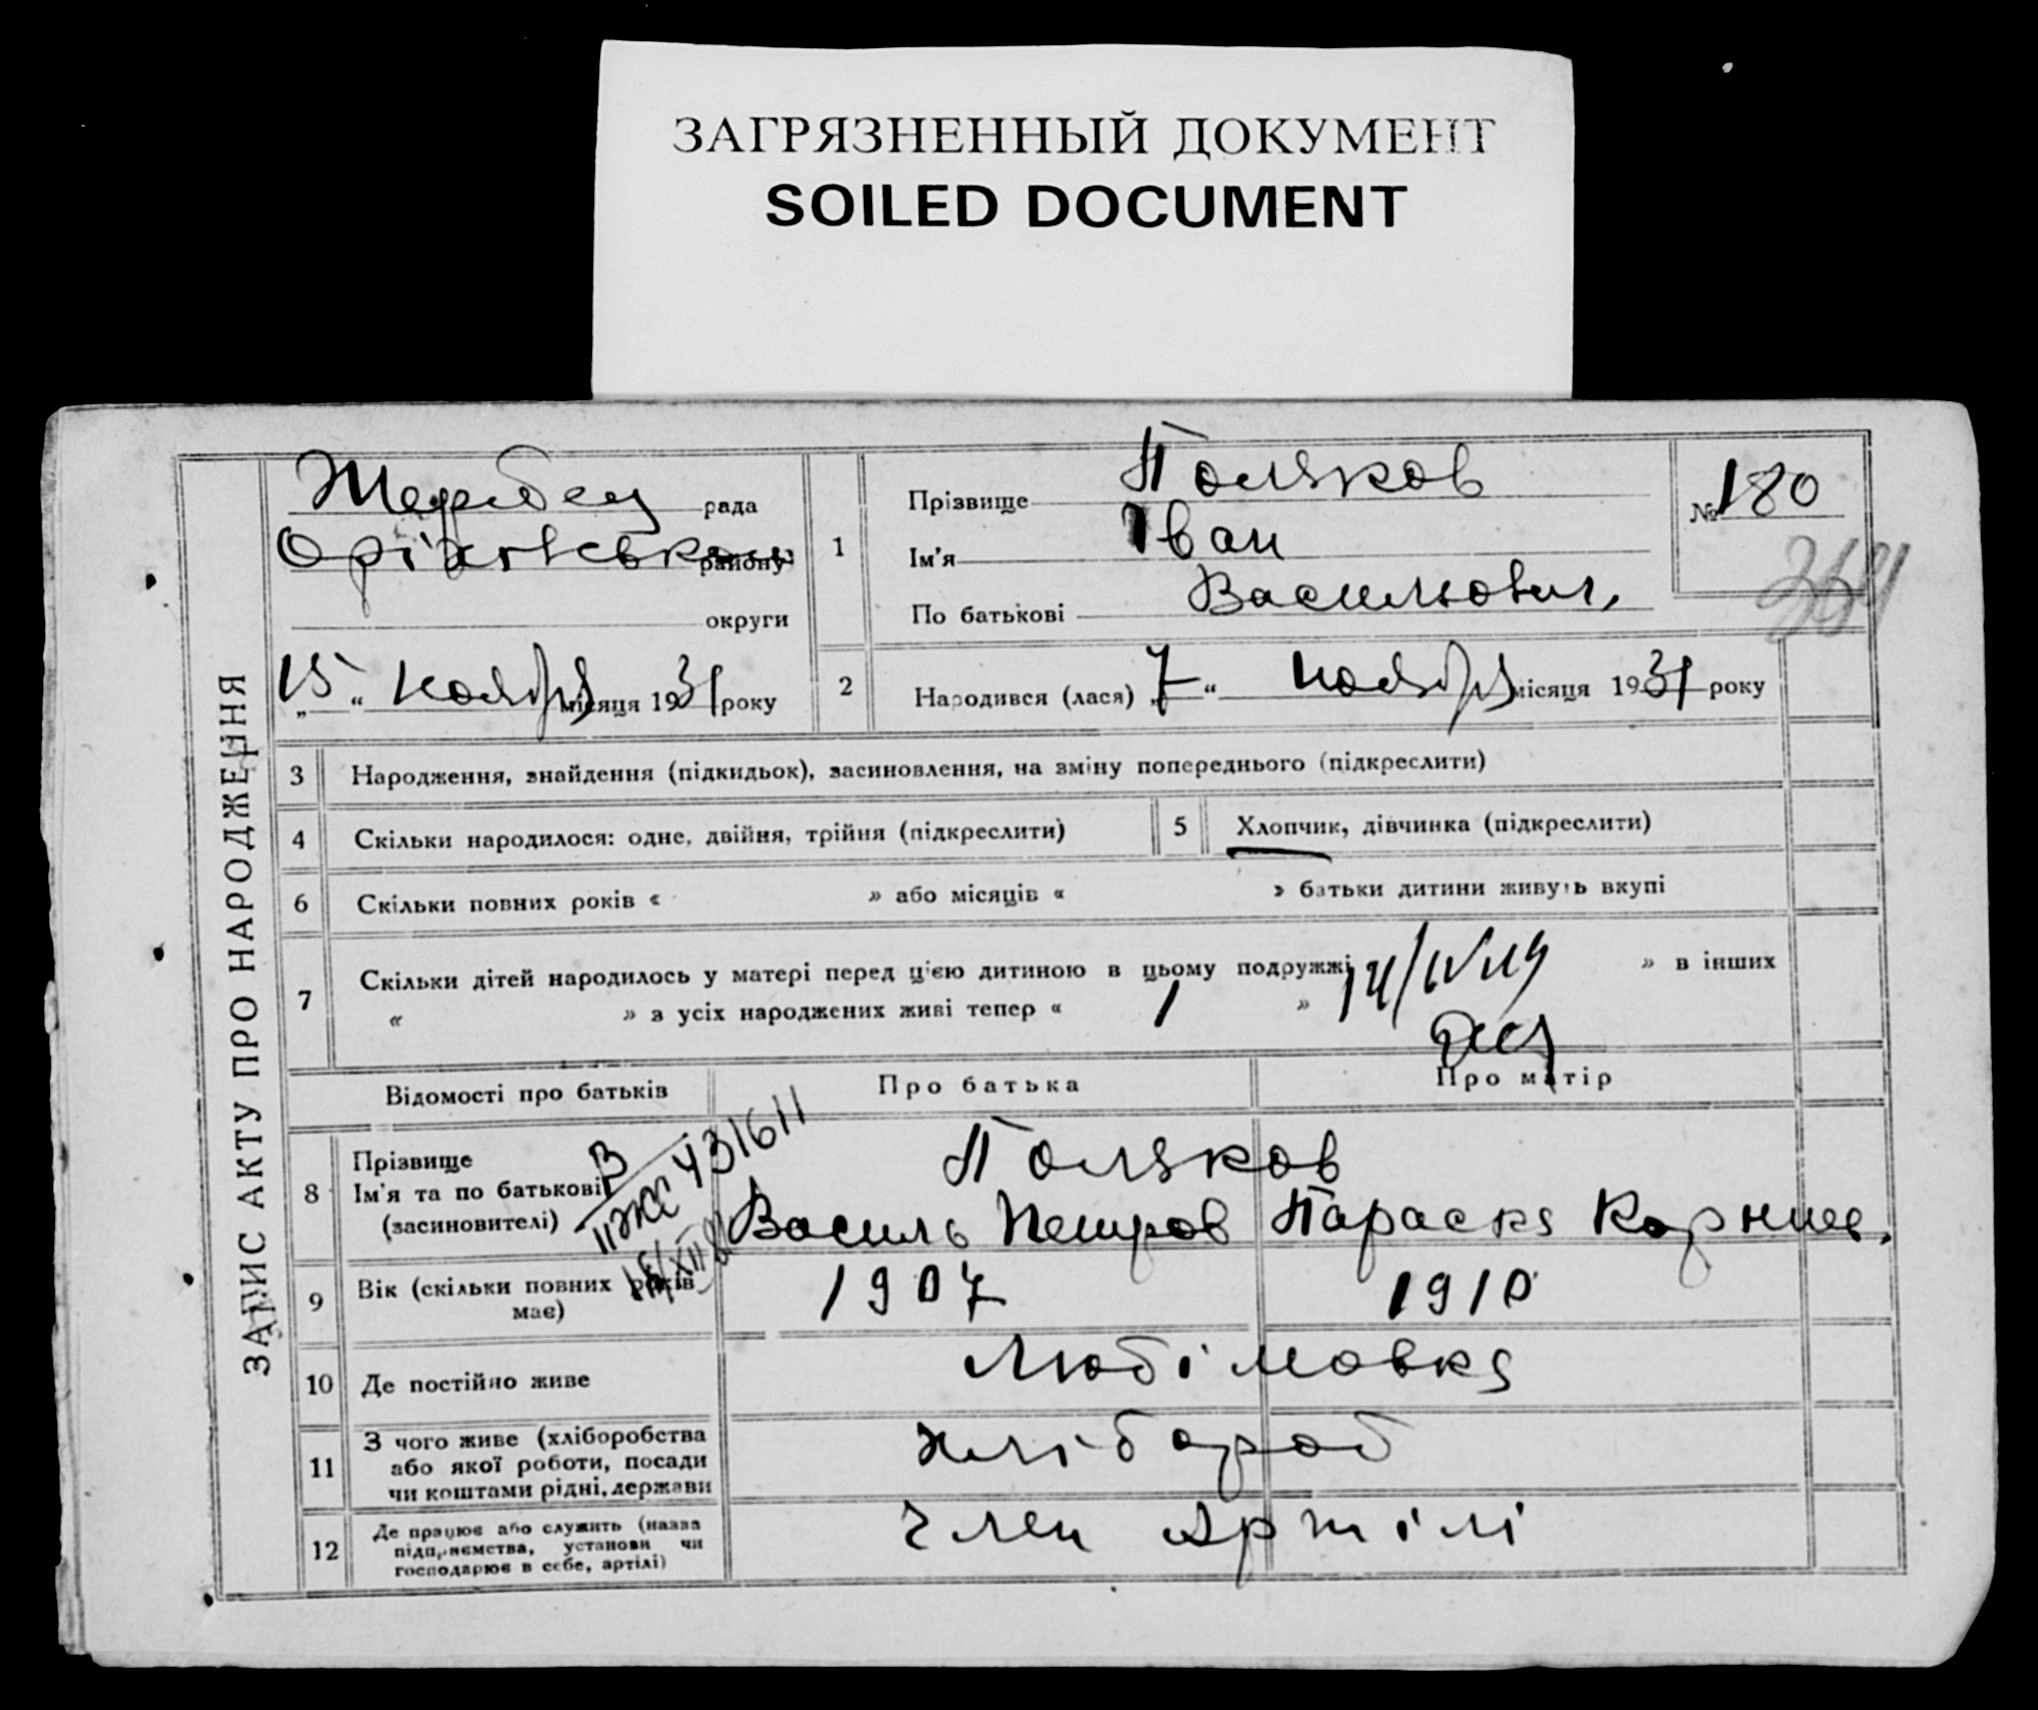 ЗАГРЯЗНЕННЫЙ ДОКУМЕНТ
SOILED DOCUMENT
ЗАПИС АКТУ ПРО НАРОДЖЕННЯ
Жеребец рада
Оріхівськ району
округи
„15“ Ноября місяця 1931 року
1
Прізвище Поляков
Ім'я Іван
По батькові Васильович
№ 180
364
2 Народився (лася) „7“ Ноября місяця 1931 року
3 Народження, знайдення (підкидьок), засиновлення, на зміну попереднього (підкреслити)
4 Скільки народилося: одне, двійня, трійня (підкреслити)
5 Хлопчик, дівчинка (підкреслити)
6 Скільки повних років « » або місяців « » батьки дитини живуть вкупі
7 Скільки дітей народилось у матері перед цією дитиною в цьому подружжі » в інших
« » з усіх народжених живі тепер « 1 »
Відомості про батьків Про батька Про матір
8 Прізвище
Ім'я та по батькові
(засиновителі)
431611
Поляков
Василь Петров Параска Корниев.
9 Вік (скільки повних років
має)
1907 1910
10 Де постійно живе Любімовка
11 З чого живе (хліборобства
або якої роботи, посади
чи коштами рідні, держави
хлібороб
12 Де працює або служить (назва
підприємства, установи чи
господарює в себе, артілі)
член Артілі